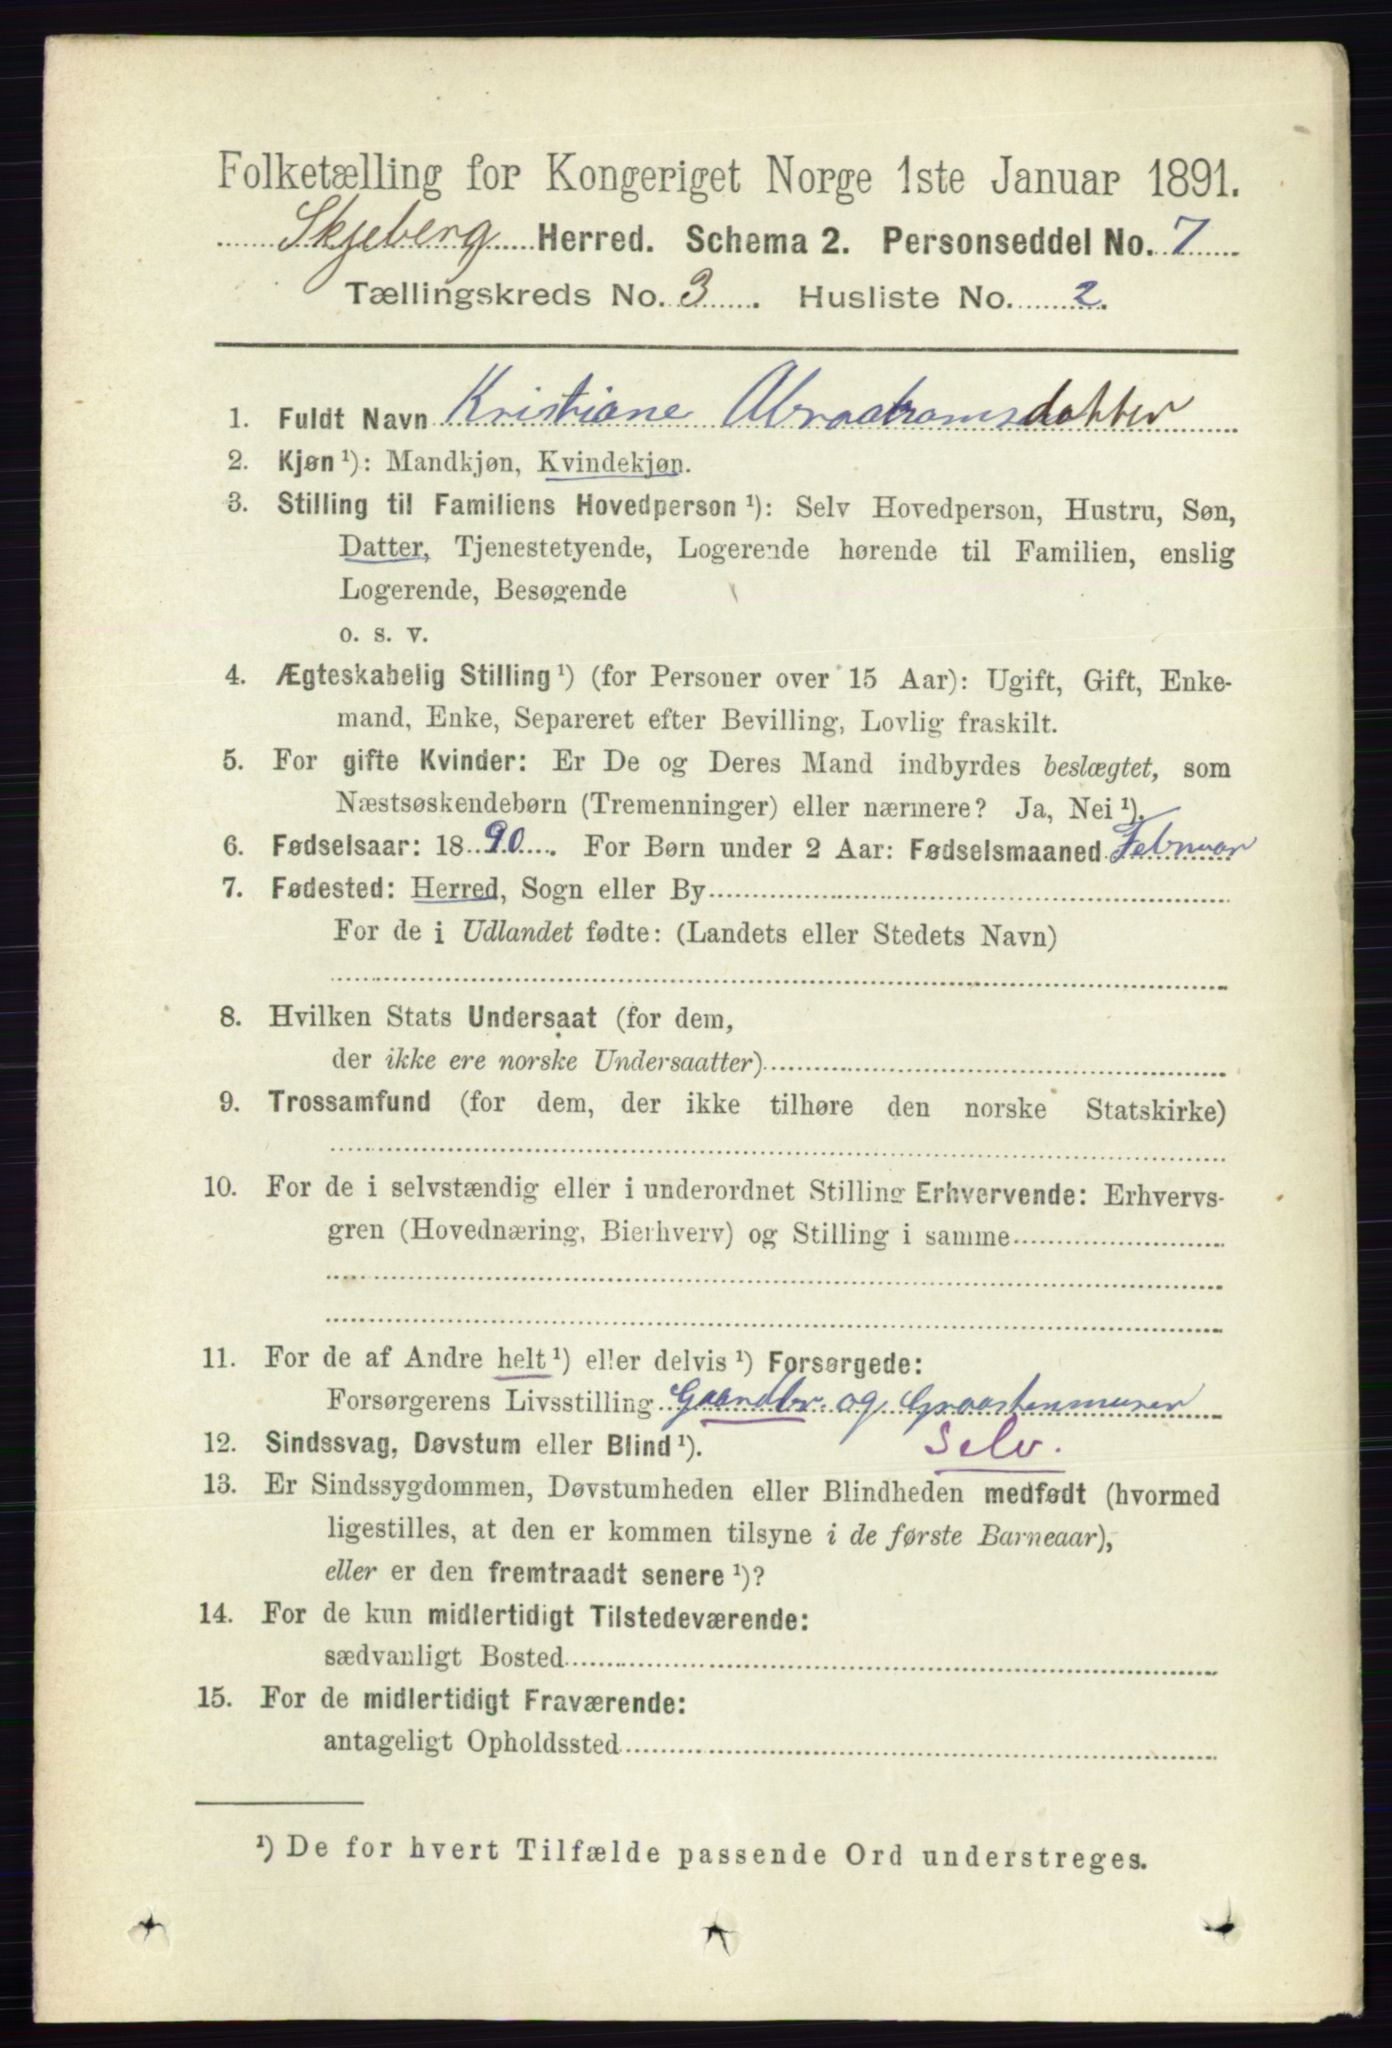 Folketælling for Kongeriget Norge 1ste Januar 1891.
Skjeberg Herred. Schema 2. Personseddel No. 7
Tællingskreds No. 3. Husliste No. 2.
1. Fuldt Navn Kristiane Abraahamsdatter
2. Kjøn ¹): Mandkjøn, Kvindekjøn.
3. Stilling til Familiens Hovedperson ¹): Selv Hovedperson, Hustru, Søn,
Datter, Tjenestetyende, Logerende hørende til Familien, enslig
Logerende, Besøgende
o. s. v.
4. Ægteskabelig Stilling ¹) (for Personer over 15 Aar): Ugift, Gift, Enke-
mand, Enke, Separeret efter Bevilling, Lovlig fraskilt.
5. For gifte Kvinder: Er De og Deres Mand indbyrdes beslægtet, som
Næstsøskendebørn (Tremenninger) eller nærmere? Ja, Nei ¹).
6. Fødselsaar: 1890. For Børn under 2 Aar: Fødselsmaaned Februar
7. Fødested: Herred, Sogn eller By
For de i Udlandet fødte: (Landets eller Stedets Navn)
8. Hvilken Stats Undersaat (for dem,
der ikke ere norske Undersaatter)
9. Trossamfund (for dem, der ikke tilhøre den norske Statskirke)
10. For de i selvstændig eller i underordnet Stilling Erhvervende: Erhvervs-
gren (Hovednæring, Bierhverv) og Stilling i samme
11. For de af Andre helt ¹) eller delvis ¹) Forsørgede:
Forsørgerens Livsstilling Gaardbr. og Graastenmurer
12. Sindssvag, Døvstum eller Blind ¹). Selv.
13. Er Sindssygdommen, Døvstumheden eller Blindheden medfødt (hvormed
ligestilles, at den er kommen tilsyne i de første Barneaar),
eller er den fremtraadt senere ¹)?
14. For de kun midlertidigt Tilstedeværende:
sædvanligt Bosted
15. For de midlertidigt Fraværende:
antageligt Opholdssted
¹) De for hvert Tilfælde passende Ord understreges.